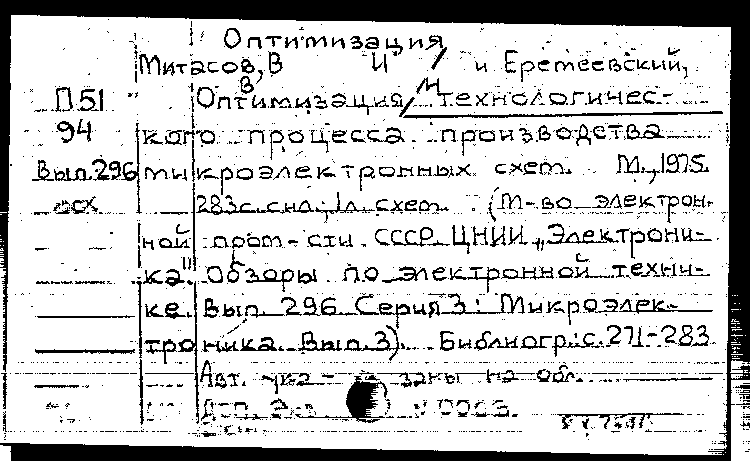 Оптимизация
Митасов, В И и Еремеевский,
В М
П51 Оптимизация технологичес-
94 кого процесса производства
Вып.296 микроэлектронных схем. М., 1975.
осх 283с.с ил.; 1л. схем. (М-во электрон-
ной пром-сти СССР ЦНИИ „Электрони-
ка". Обзоры по электронной техни-
ке. Вып. 296. Серия 3: Микроэлек-
троника. Вып. 3). Библиогр.: с. 271-283
Авт. ука- заны на обл.